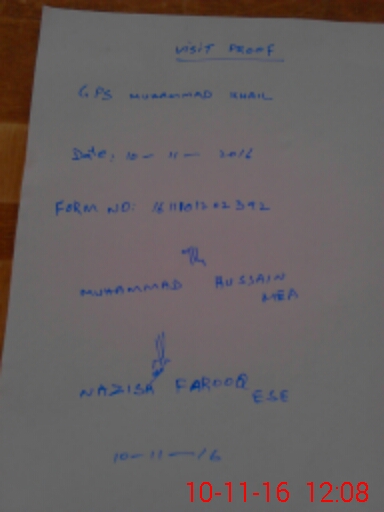 VISIT PROOF
GPS MUHAMMAD KHAIL
Date: 10 - 11 - 2016
FORM NO:
MUHAMMAD HUSSAIN
MEA
NAZISH FAROOQ
ESE
10-11-16
10-11-16 12:08